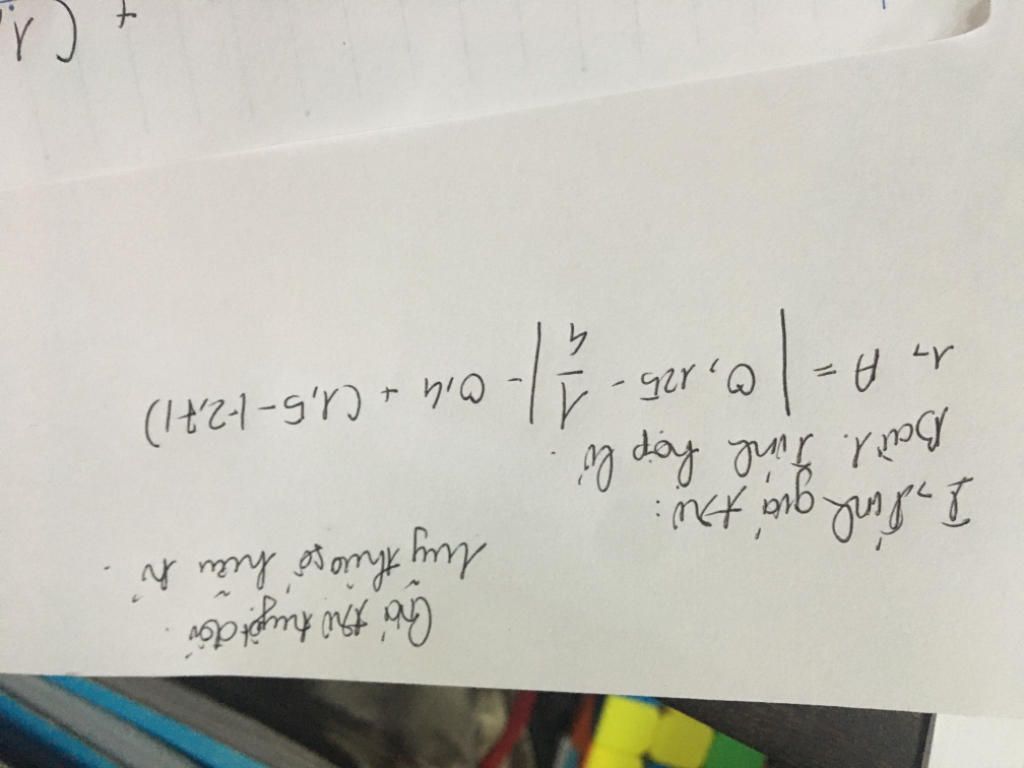 Giá trị tuyệt đối.
luỹ thừa số hữu tỉ.
I, Tính giá trị:
Bài 1. Tính hợp lí.
1, A = | 0,125 - 1/4 | - 0,4 + (1,5 - |-2,7|)